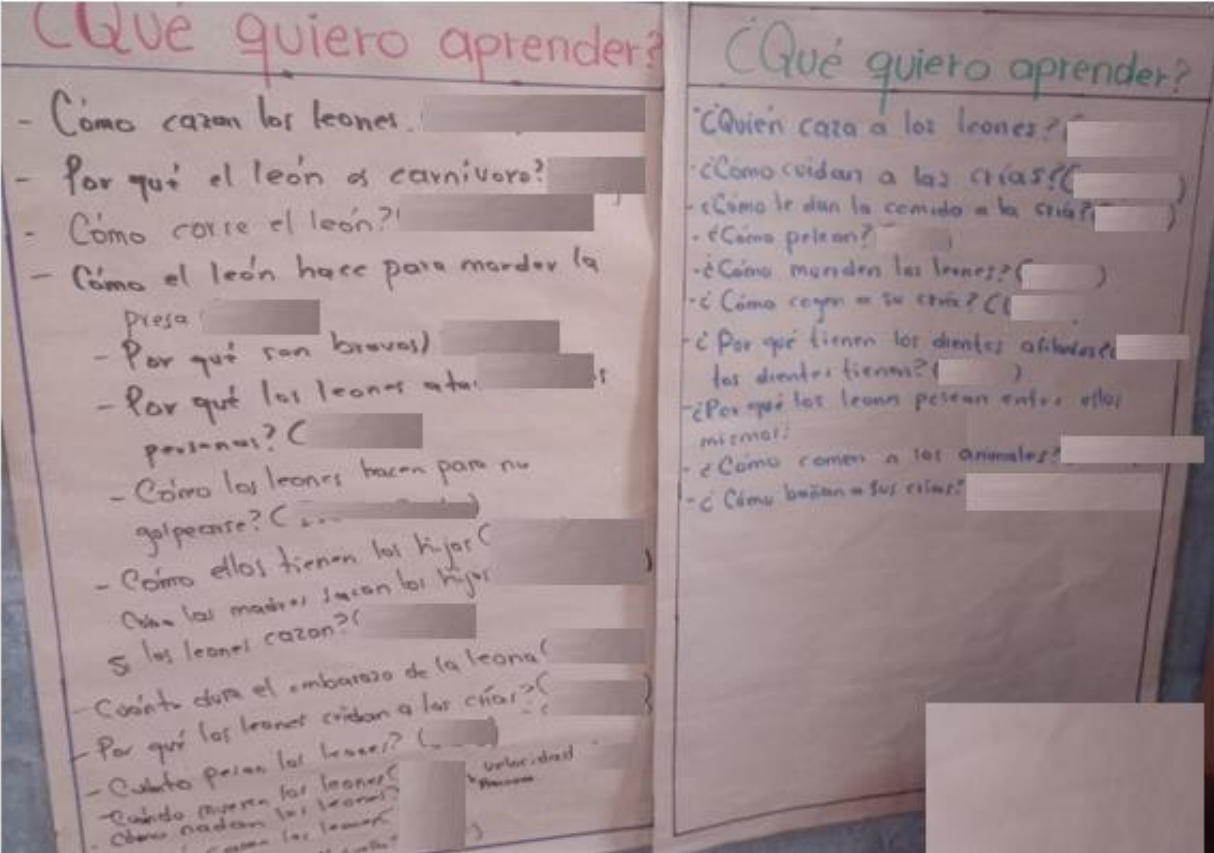 ¿Qué quiero aprender?
- Cómo cazan los leones.
- Por qué el león es carnívoro?
- Cómo corre el león?
- Cómo el león hace para morder la
presa
- Por qué son bravos)
- Por qué los leones
personas? (
- Cómo los leones hacen para no
golpearse? (
- Cómo ellos tienen los hijos (
las madres sacan los hijos
Si los leones cazan? (
- Cuánto dura el embarazo de la leona (
- Por qué los leones cuidan a las crías? (
- Cuánto pesan los leones? (
- Cuándo mueren los leones (
velocidad
- Cómo nadan los leones?
los leones
¿Qué quiero aprender?
¿Quién caza a los leones? (
- ¿Cómo cuidan a las crías? ( )
- ¿Cómo le dan la comida a la cría? ( )
- ¿Cómo pelean? ( )
- ¿Cómo los leones? ( )
- ¿Cómo cogen a su cría? (
- ¿Por qué tienen los dientes afilados?
los dientes tienen? ( )
- ¿Por qué los leones pelean entre ellos
mismos?
- ¿Cómo comen a los animales?
- ¿Cómo bañan a sus crías?